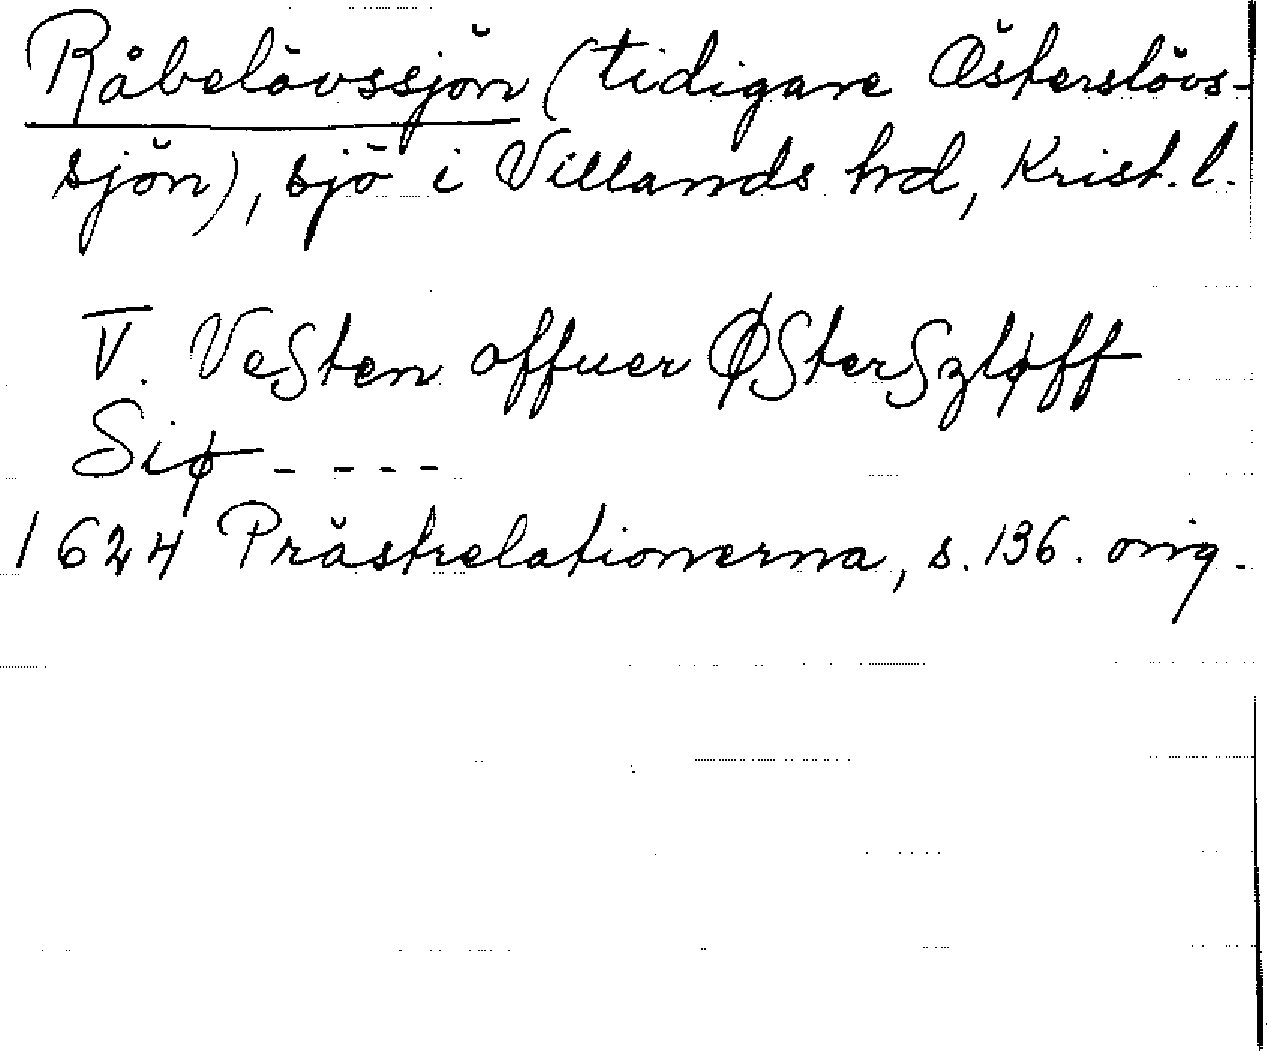 Råbelövssjön (tidigare Österslövs-
sjön), sjö i Villands hd, Krist. l.
V. Veßten offuer ØßterßzLøff
Siø - - - -
1624 Prästrelationerna, s. 136. orig.